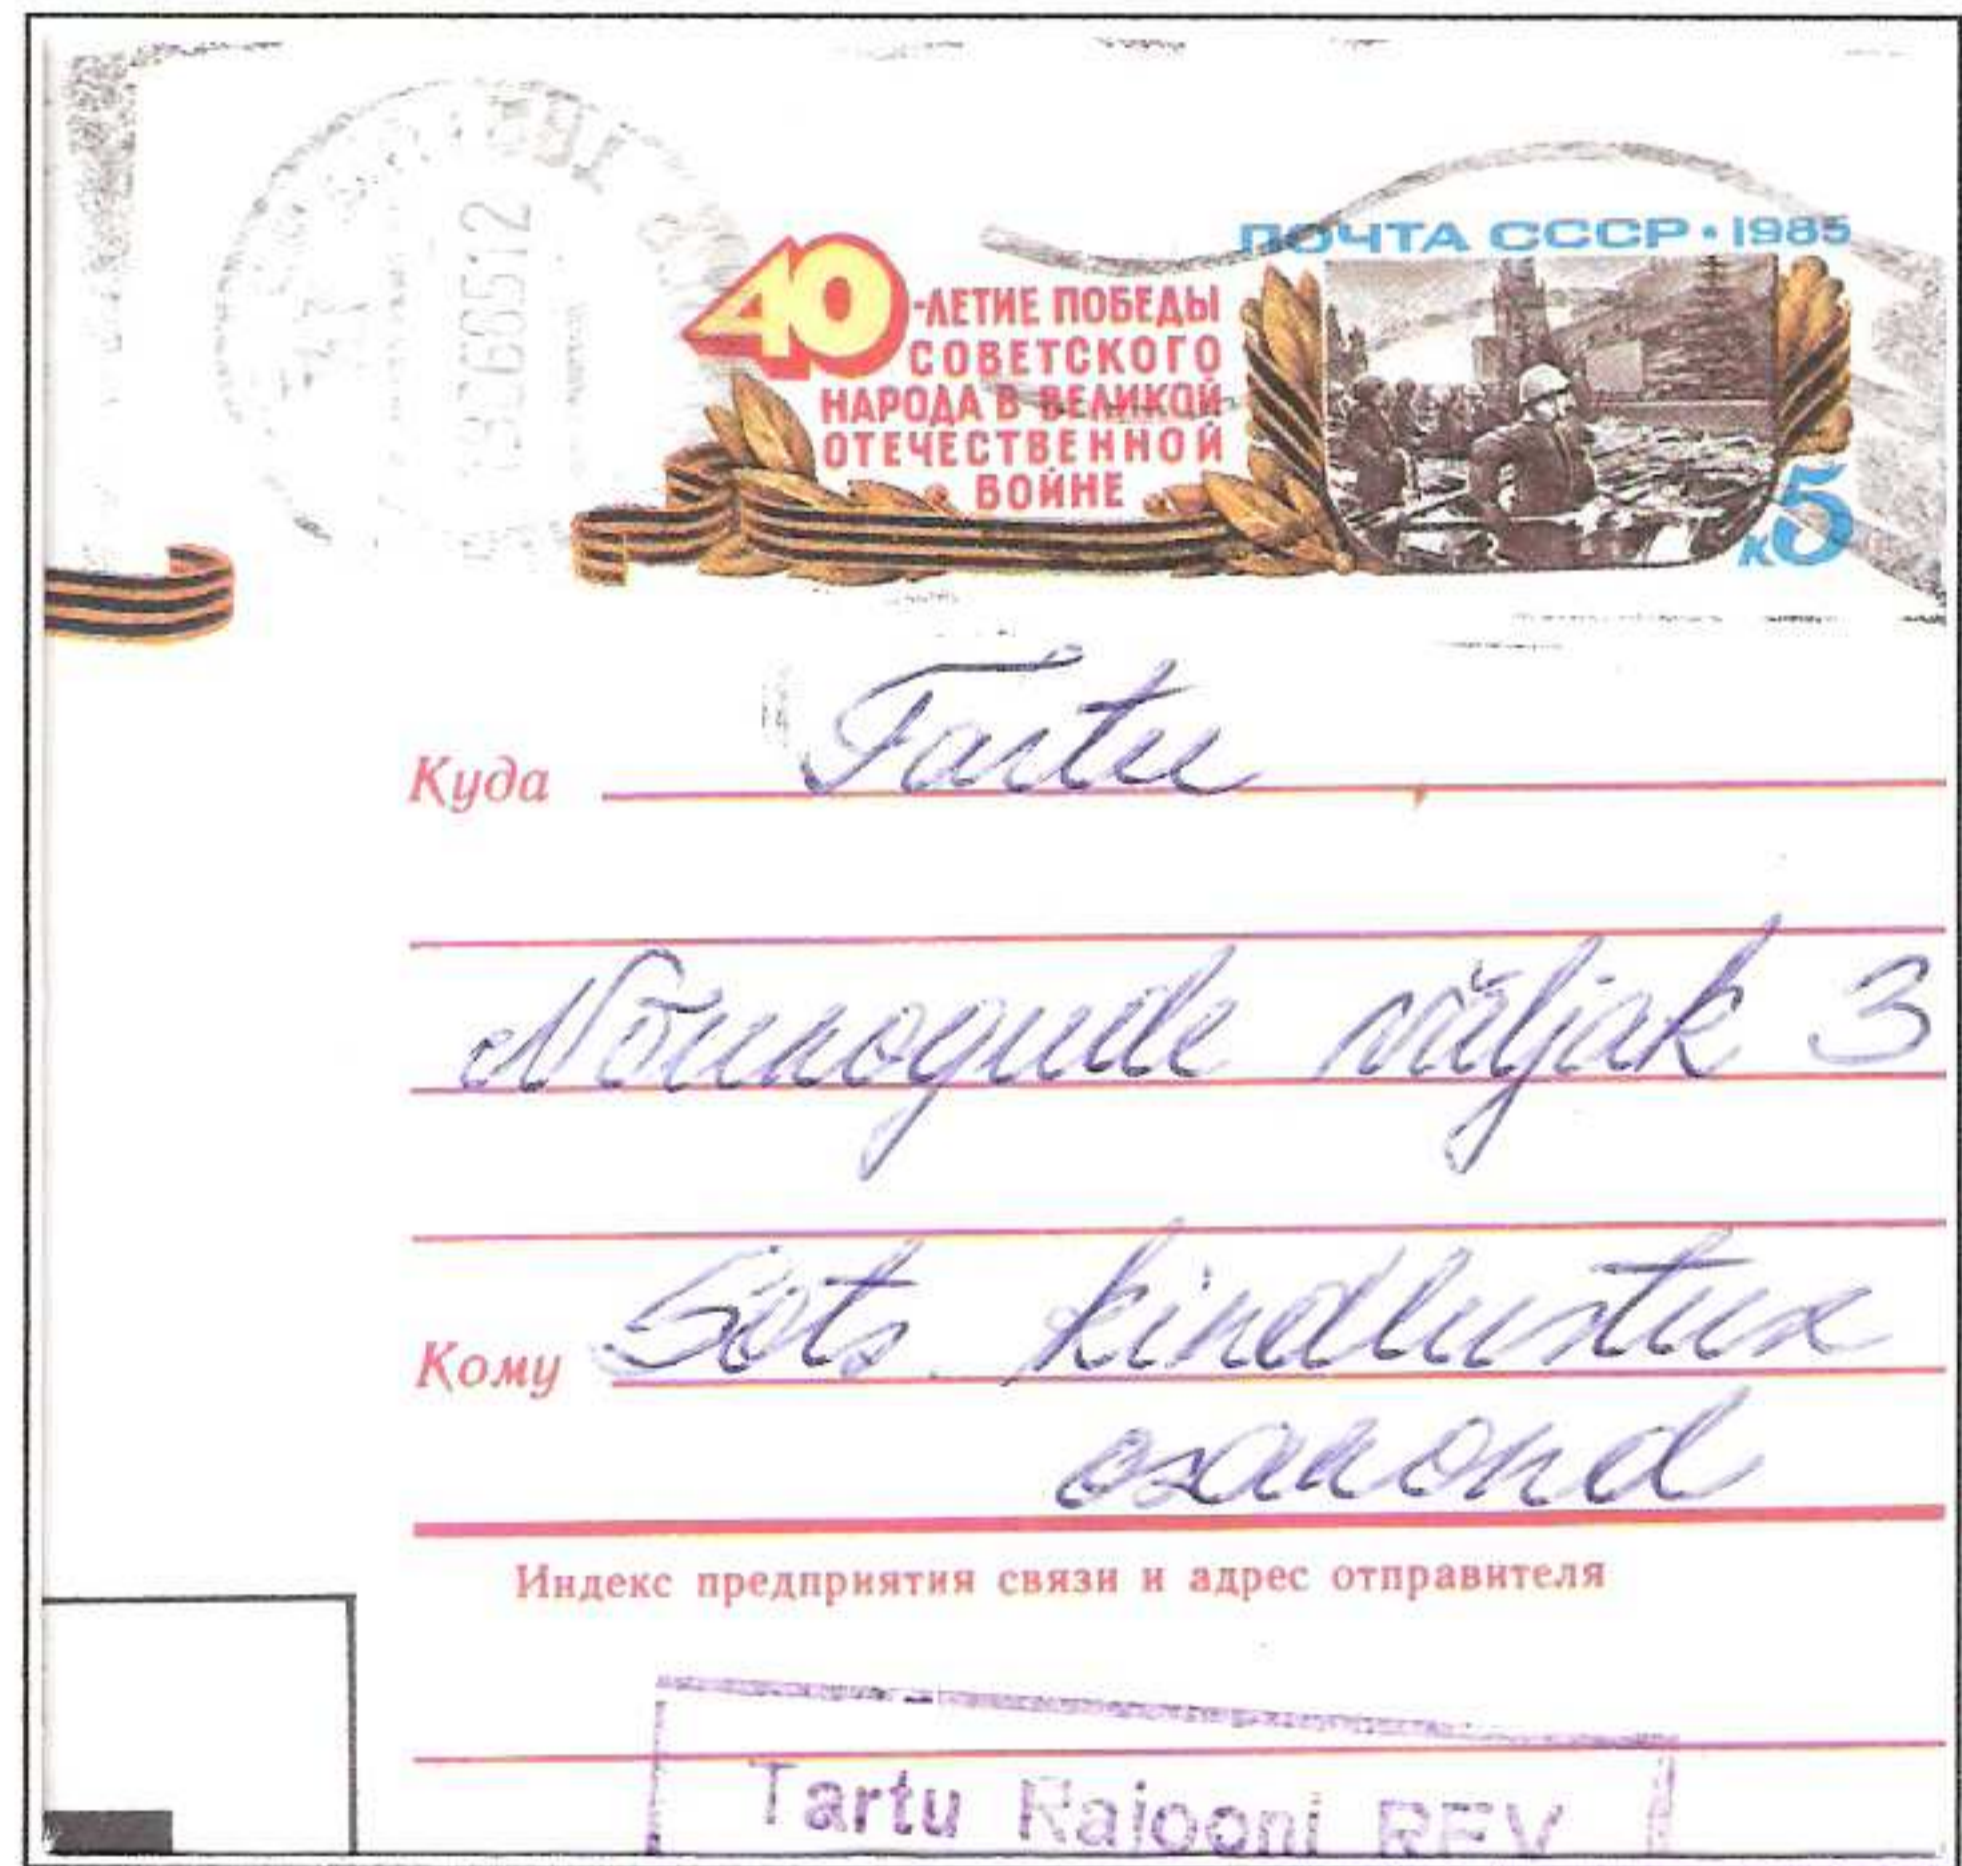 ПОЧТА СССР • 1985
40-ЛЕТИЕ ПОБЕДЫ
СОВЕТСКОГО
НАРОДА В ВЕЛИКОЙ
ОТЕЧЕСТВЕННОЙ
ВОЙНЕ
к5
Куда Tartu
Nõunogude väljak 3
Кому Sots. kindlustus
osakond
Индекс предприятия связи и адрес отправителя
Tartu Rajooni REV